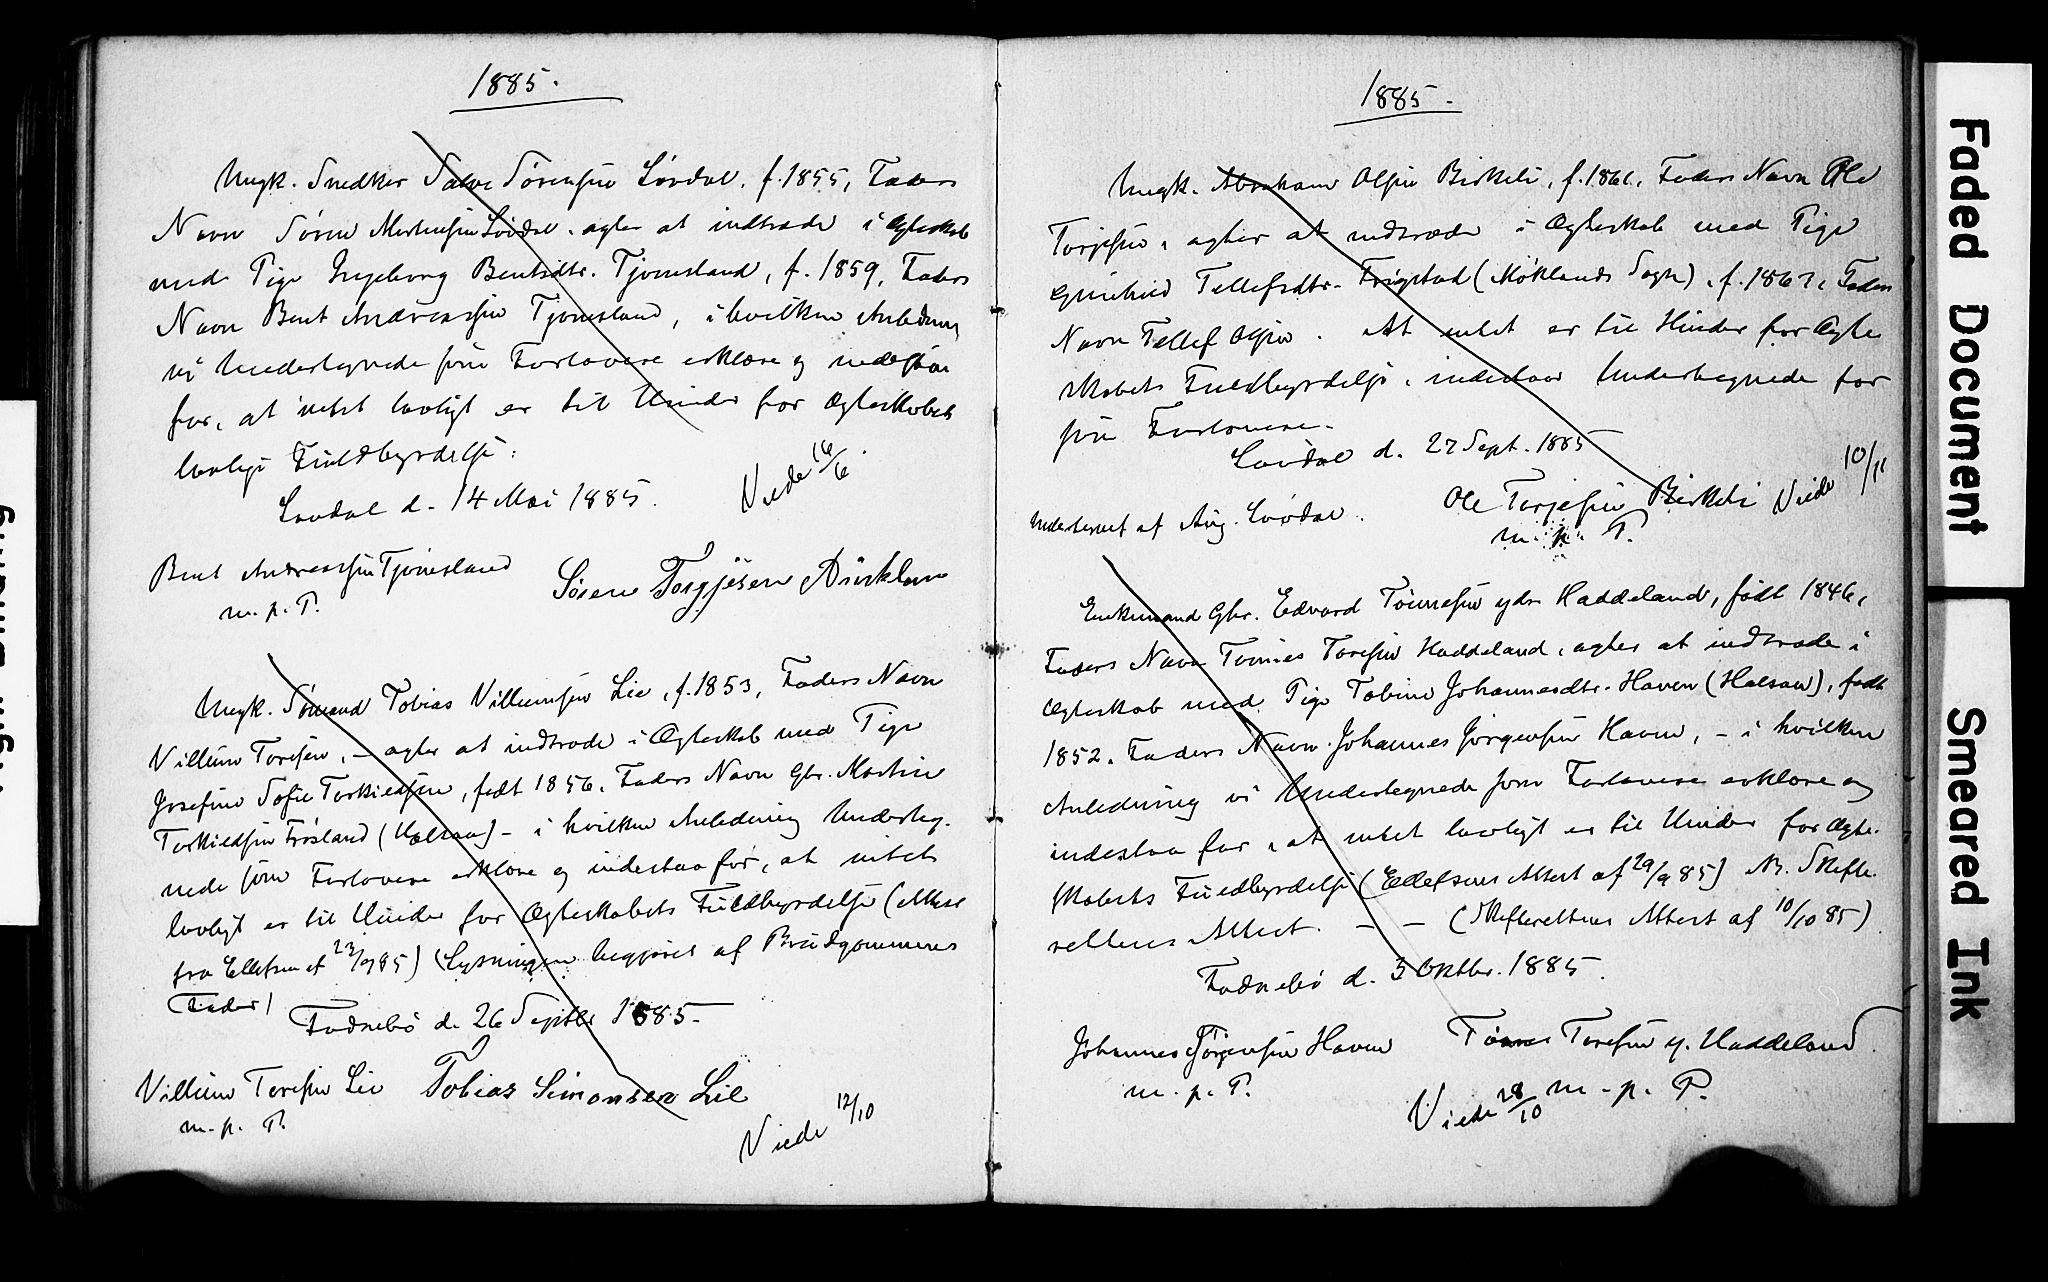 1885.
Ungk. Snedker Salve Sørensen Løvdal, f. 1855, Faders
Navn Søren Mortensen Løvdal, agter at indtræde i Ægteskab
med Pige Ingeborg Bentsdtr. Tjomsland, f. 1859, Faders
Navn Bent Andreassen Tjomsland, i hvilken Anledning
vi Undertegnede som Forlovere erklære og indestaa
for, at intet lovligt er til Hinder for Ægteskabets
lovlige Fuldbyrdelse.
Løvdal d. 14 Mai 1885.
Viede 16/6
Bent Andreassen Tjomsland
m. p. P.
Sören Torgjesen
Ungk. Sømand Tobias Villumsen Lie, f. 1853, Faders Navn
Villum Toresen, – agter at indtræde i Ægteskab med Pige
Josefine Sofie Torkildsen, født 1856, Faders Navn Gbr. Martin
Torkildsen Frøsland (Halsaa) – i hvilken Anledning Underteg-
nede som Forlovere erklære og indestaa for, at intet
lovligt er til Hinder for Ægteskabets Fuldbyrdelse (Attest
fra Ellefsen af 23/9 85) (Lysningen begjøres af Brudgommens
Fader)
Fodnebø d. 26 Septbr 1885.
Villum Toresen Lie
m. p. P.
Tobias Simonsen Lie
Viede 12/10
1885.
Ungk. Abraham Olsen Birkeli, f. 1861, Faders Navn Ole
Torjesen, agter at indtræde i Ægteskab med Pige
Gunhild Tellefsdtr. Frigstad (Høklands Sogn), f. 1867, Faders
Navn Tellef Olsen. At intet er til Hinder for Ægte
skabets Fuldbyrdelse, indestaar Undertegnede for
som Forlovere.
Løvdal d. 27 Sept. 1885
Ole Torjesen Birkeli
m. p. P.
Viede 10/11
Underskrevet af Aug. Løvdal.
Enkemand Gbr. Edvard Tønnesen ydre Haddeland, født 1846,
Faders Navn Tønnes Toresen Haddeland, agter at indtræde i
Ægteskab med Pige Tobine Johannesdtr. Haven (Halsaa), født
1852. Faders Navn Johannes Jørgensen Haven, – i hvilken
Anledning vi Undertegnede som Forlovere erklære og
indestaa for, at intet lovligt er til Hinder for Ægte-
skabets Fuldbyrdelse (Ellefsens Attest af 29/9 85) N. Skifte-
rettens Attest. – – (Skifterettens Attest af 10/10 85)
Fodnebø d. 3 Oktbr. 1885.
Johannes Jørgensen Haven
m. p. P.
Tønnes Toresen y. Haddeland
m. p. P.
Viede 28/10
Faded Document
Smeared Ink